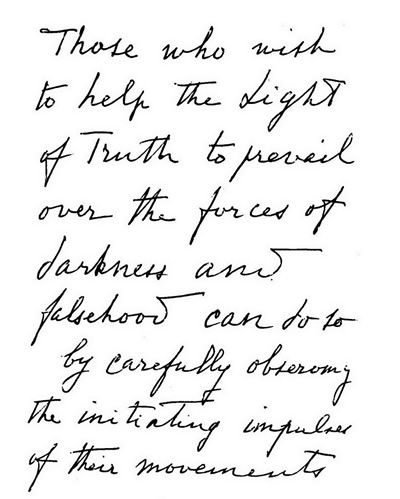 Those who wish
to help the Light
of Truth to prevail
over the forces of
darkness and
falsehood can do so
by carefully observing
the initiating impulses
of their movements